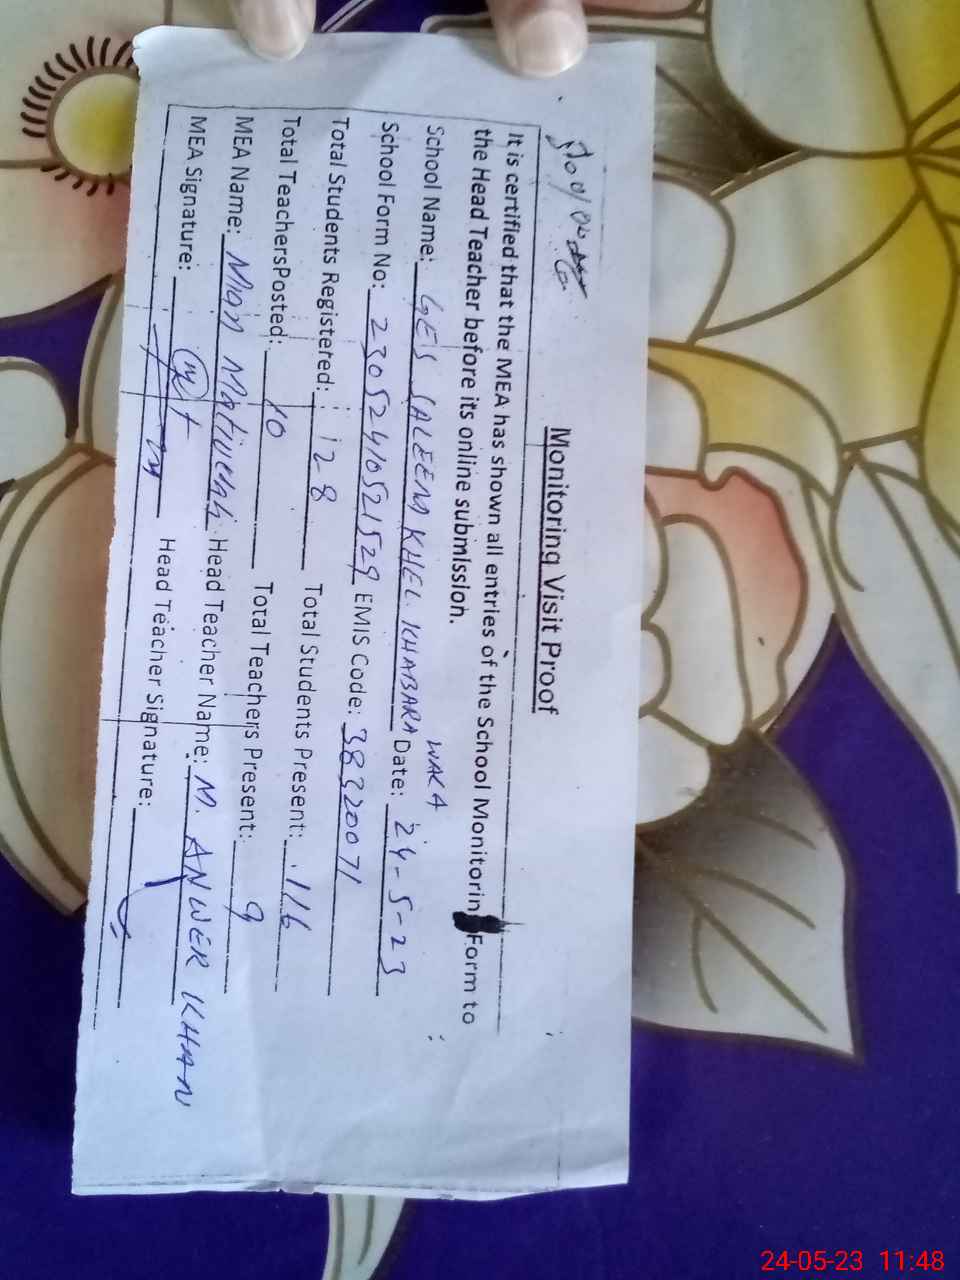 Monitoring Visit Proof
It is certified that the MEA has shown all entries of the School Monitorin Form to
the Head Teacher before its online submission.
WAKA
School Name: GES SALEEM KHEL KHABARA Date: 24-5-23
School Form No: 23052410521529 EMIS Code: 38320071
Total Students Registered: 128 Total Students Present: 116
Total TeachersPosted: 10 Total Teachers Present: 9
MEA Name: Mian Matiullah Head Teacher Name: M. ANWER KHAN
MEA Signature: Head Teacher Signature:
24-05-23 11:48